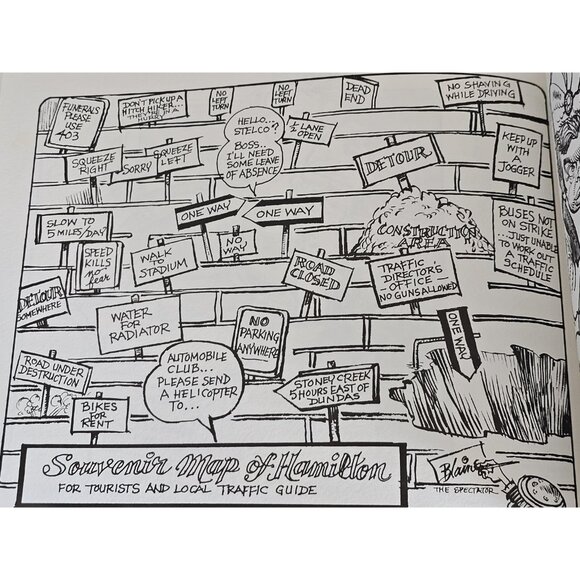 FUNERALS
PLEASE
USE
403
DON'T PICK UP A
HITCH HIKER...
NO
LEFT
TURN
NO
LEFT
TURN
DEAD
END
NO SHAVING
WHILE DRIVING
HELLO...
STELCO?
BOSS..
I'LL NEED
SOME LEAVE
OF ABSENCE
½ LANE
OPEN
SQUEEZE
RIGHT
SORRY
SQUEEZE
LEFT
DETOUR
KEEP UP
WITH
A
JOGGER
SLOW TO
5 MILES/DAY
ONE WAY
ONE WAY
NO
WAY
CONSTRUCTION
AREA
BUSES NOT
ON STRIKE
...JUST UNABLE
TO WORK OUT
A TRAFFIC
SCHEDULE
SPEED
KILLS
no
fear
WALK
TO
STADIUM
ROAD
CLOSED
TRAFFIC
DIRECTORS
OFFICE
NO GUNS ALLOWED
DETOUR
SOMEWHERE
WATER
FOR
RADIATOR
NO
PARKING
ANYWHERE
ONE WAY
ROAD UNDER
DESTRUCTION
AUTOMOBILE
CLUB...
PLEASE SEND
A HELICOPTER
TO...
STONEY CREEK
5 HOURS EAST OF
DUNDAS
BIKES
FOR
RENT
Souvenir Map of Hamilton
FOR TOURISTS AND LOCAL TRAFFIC GUIDE
Blaine
THE SPECTATOR